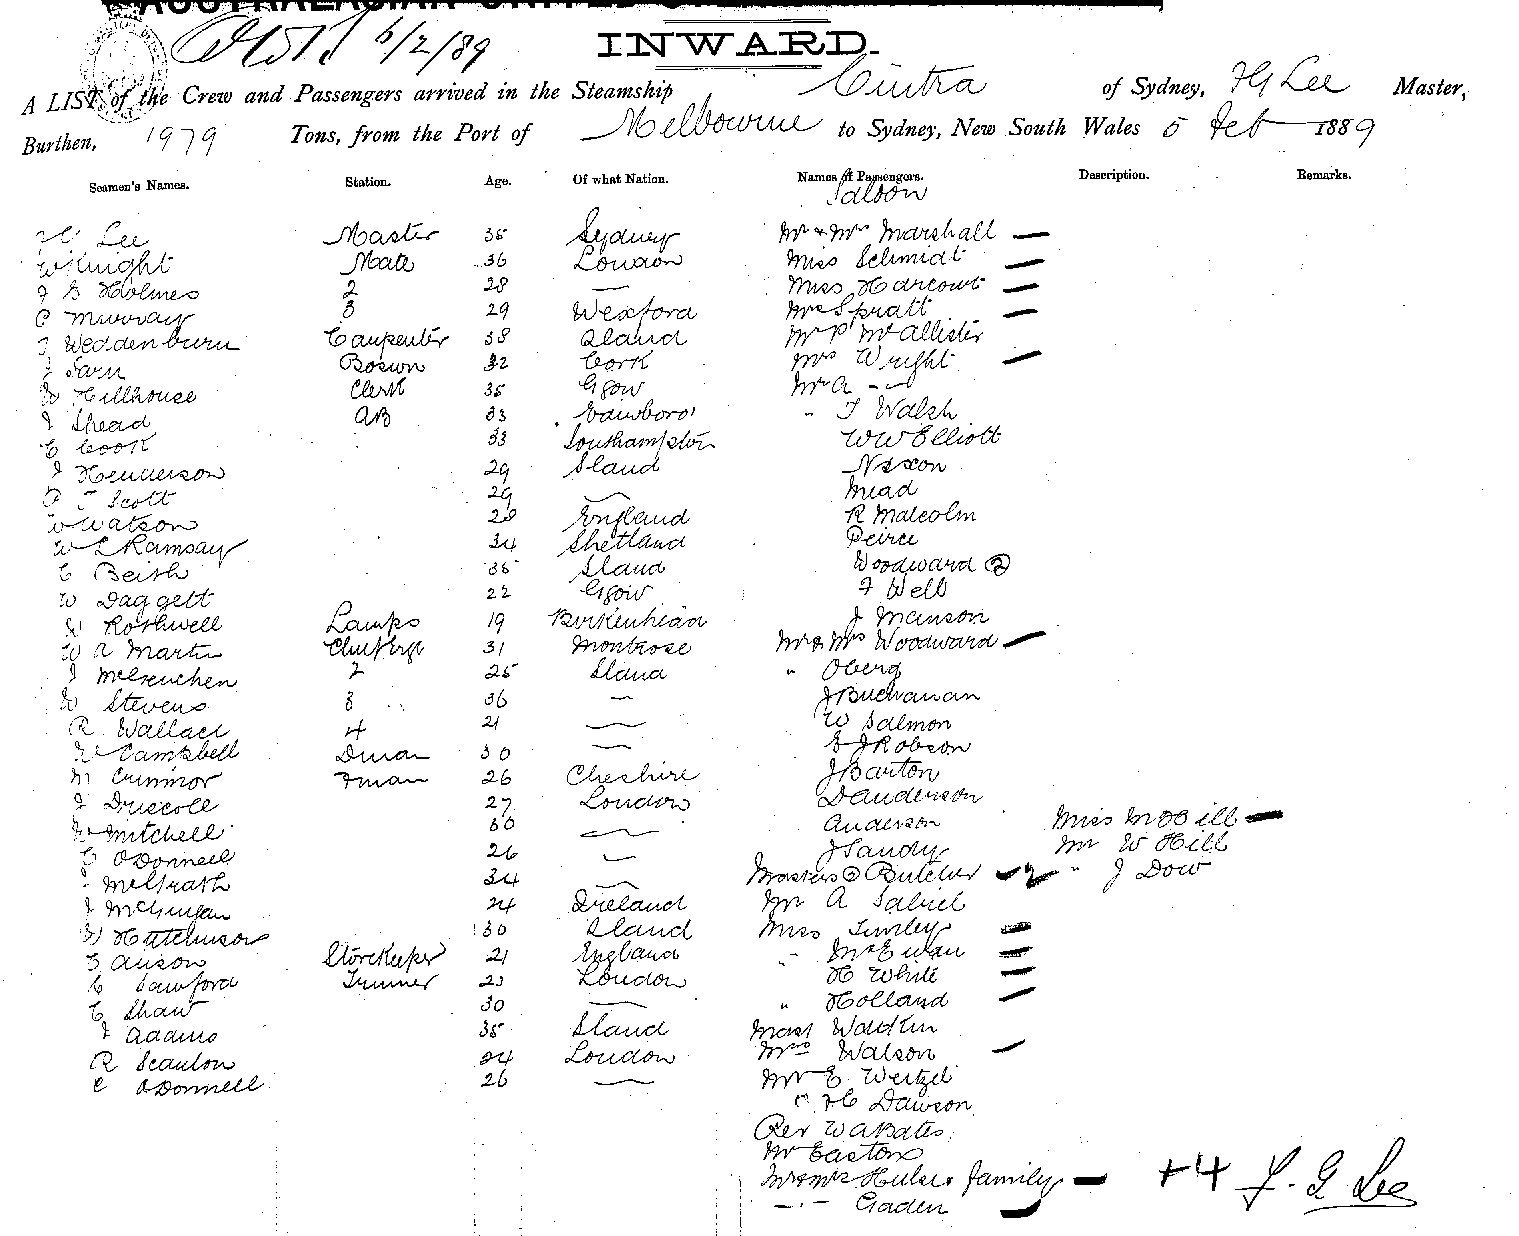 INWARD.
6/2/89
A LIST of the Crew and Passengers arrived in the Steamship Cintra of Sydney, H G Lee Master,
Burthen, 1979 Tons, from the Port of Melbourne to Sydney, New South Wales 5 Feb 1889
Seamen's Names. Station. Age. Of what Nation. Names of Passengers. Description. Remarks.
Saloon
Lee Master 35 Sydney Mr & Mrs Marshall —
W Knight Mate 36 London Miss Schmidt —
J G Holmes 2 28 — Miss Harcourt —
C Murray 3 29 Wexford Mrs Spratt —
J Weddenburn Carpenter 38 Sland Mr P McAllister
Bosun 32 Cork Mrs Wright —
W Hillhouse Clerk 35 Gsow Mr A - —
J Shead AB 33 " J Walsh
C Cook 33 Southampton W W Elliott
J Henderson 29 Sland Nixon
P J Scott 29 — Mead
W Watson 28 England R Malcolm
W L Ramsay 34 Shetland Peirce
C Beith 35 Sland Woodward (2)
W Daggett 22 Gsow J Well
W Rothwell Lamps 19 Birkenhead J Manson
W A Martin 31 Montrose Mr & Mrs Woodward —
J 2 25 Sland " Oberg
W Stevens 3 36 — J Buchanan
R Wallace 4 21 — W Salmon
Campbell Dman 30 — E J Robson
Fman 26 Cheshire J Barton
J Driscoll 27 London D Anderson
W Mitchell 30 — Anderson Miss M Hill —
C O'Donnell 26 — J Sandy Mr W Hill
McGrath 34 — Masters (2) Butcher — 2 " J Dow
J 24 Ireland Mr A
W Hutchinson 30 Sland Miss —
Storekeeper 21 England " McEwan —
C Trimmer 23 London H White —
C Shaw 30 — " Holland —
J Adams 35 Sland Mast
R Scanlon 24 London Mrs Watson —
C O'Donnell 26 — Mr E Weitzel
" H C Dawson
Rev W A Bates
Mr Easton
Mr & Mrs Hulse & family —
— " — Gaden —
+4 H. G Lee